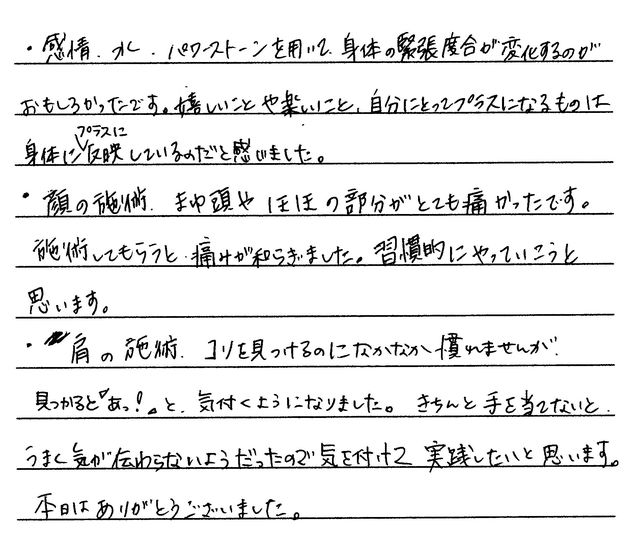 ・感情、水、パワーストーンを用いて、身体の緊張度合が変化するのが
おもしろかったです。嬉しいことや楽しいこと、自分にとってプラスになるものは
身体にプラスに反映しているのだと感じました。
・顔の施術、まゆ頭やほほの部分がとても痛かったです。
施術してもらうと、痛みが和らぎました。習慣的にやっていこうと
思います。
・肩の施術、コリを見つけるのになかなか慣れませんが、
見つかると"あっ!"と、気付くようになりました。きちんと手を当てないと、
うまく気が伝わらないようだったので気を付けて実践したいと思います。
本日はありがとうございました。